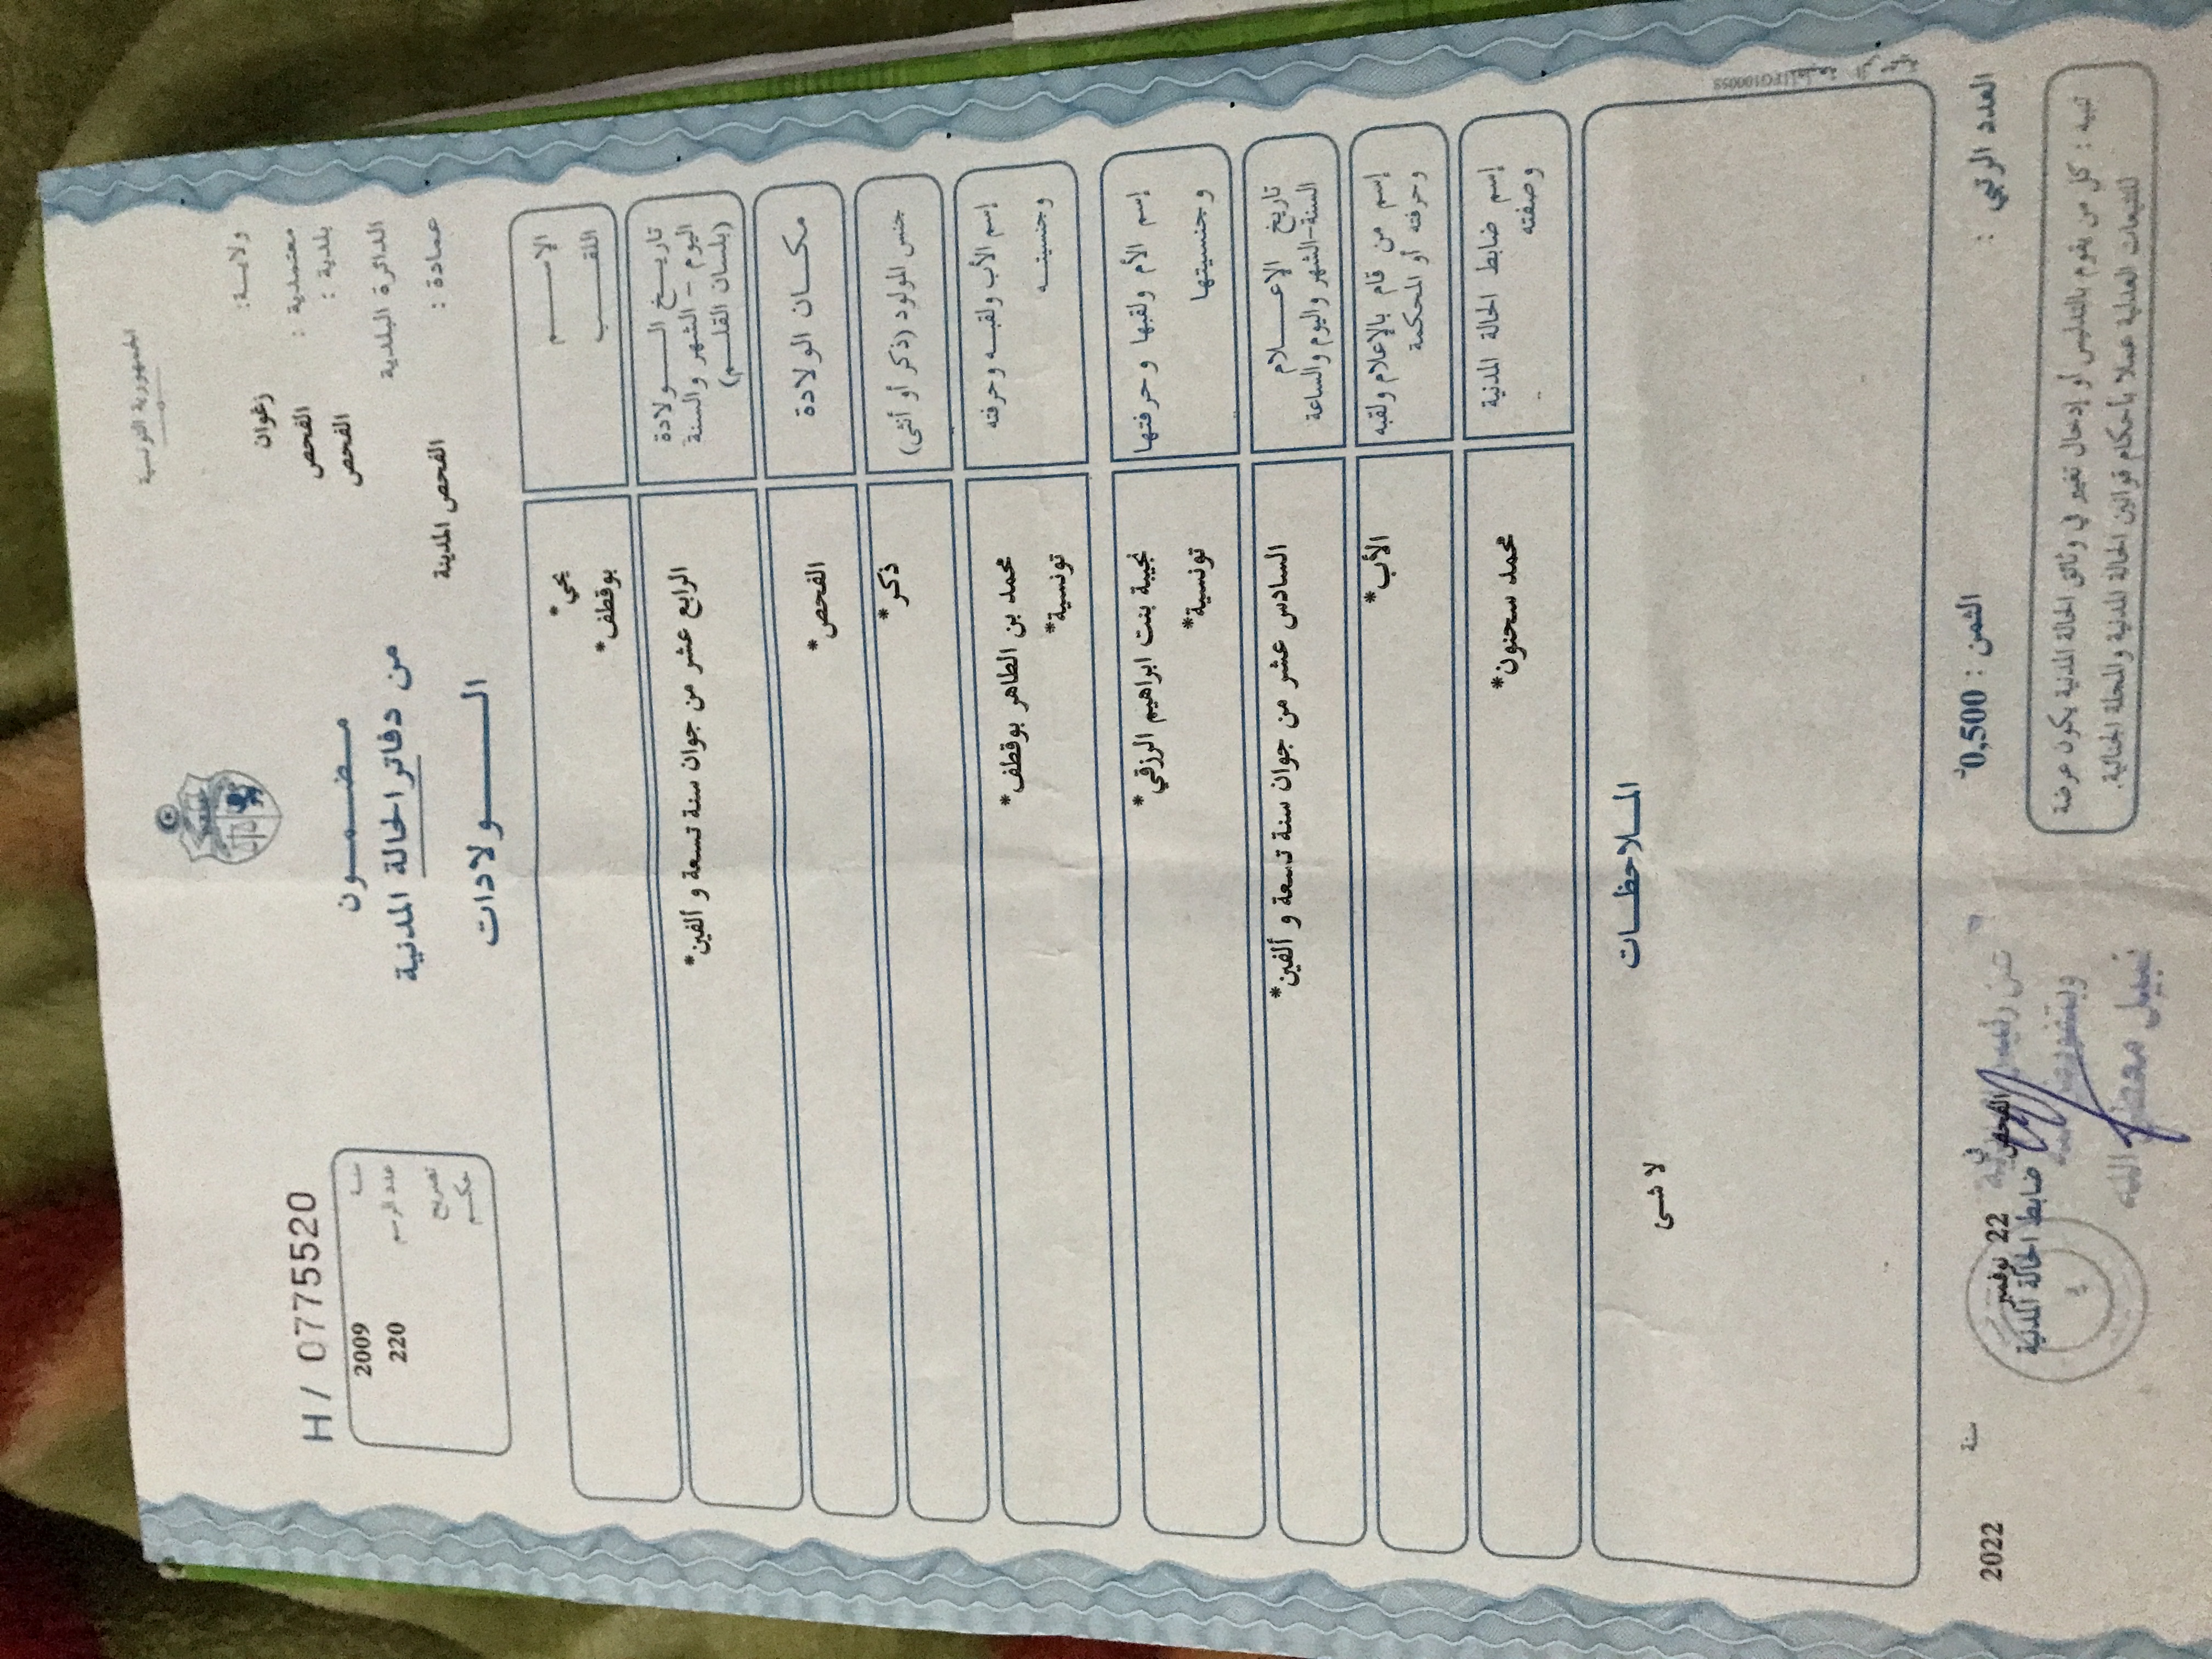 الجمهورية التونسية
ولايـــة: زغوان
معتمدية : الفحص
بلدية : الفحص
الدائرة البلدية
عمادة : الفحص المدينة
مضـمــون
من دفاتر الحالة المدنية
الــــولادات
H / 0775520
سنـة 2009
عدد الرسم 220
تصريح
حكـم
الإســـــم يحي*
اللقـــــب بوقطف*
تاريــخ الــــولادة
اليوم - الشهر والسنة
(بلسان القلـم)
الرابع عشر من جوان سنة تسعة و ألفين*
مكــان الولادة الفحص*
جنس المولود (ذكر أو أنثى) ذكر*
إسم الأب ولقبـه وحرفته محمد بن الطاهر بوقطف*
وجنسيتـه تونسية*
إسم الأم ولقبها وحرفتها نجيبة بنت ابراهيم الرزقي*
وجنسيتها تونسية*
تاريخ الإعـــلام
السنة-الشهر واليوم والساعة
السادس عشر من جوان سنة تسعة و ألفين*
إسم من قام بالإعلام ولقبه الأب*
وحرفته أو المحكمة
إسم ضابط الحالة المدنية محمد سحنون*
وصفته
المــلاحظــات
لا شئ
العدد الرتبي :
الثمن : 0,500د
الفحص في 22 نوفمبر سنة 2022
ضابط الحالة المدنية
نبيل
تنبيه : كل من يقوم بالتدليس أو إدخال تغيير في وثائق الحالة المدنية يكون عرضة
للتتبعات العدلية عملا بأحكام قوانين الحالة المدنية والمجلة الجنائية.